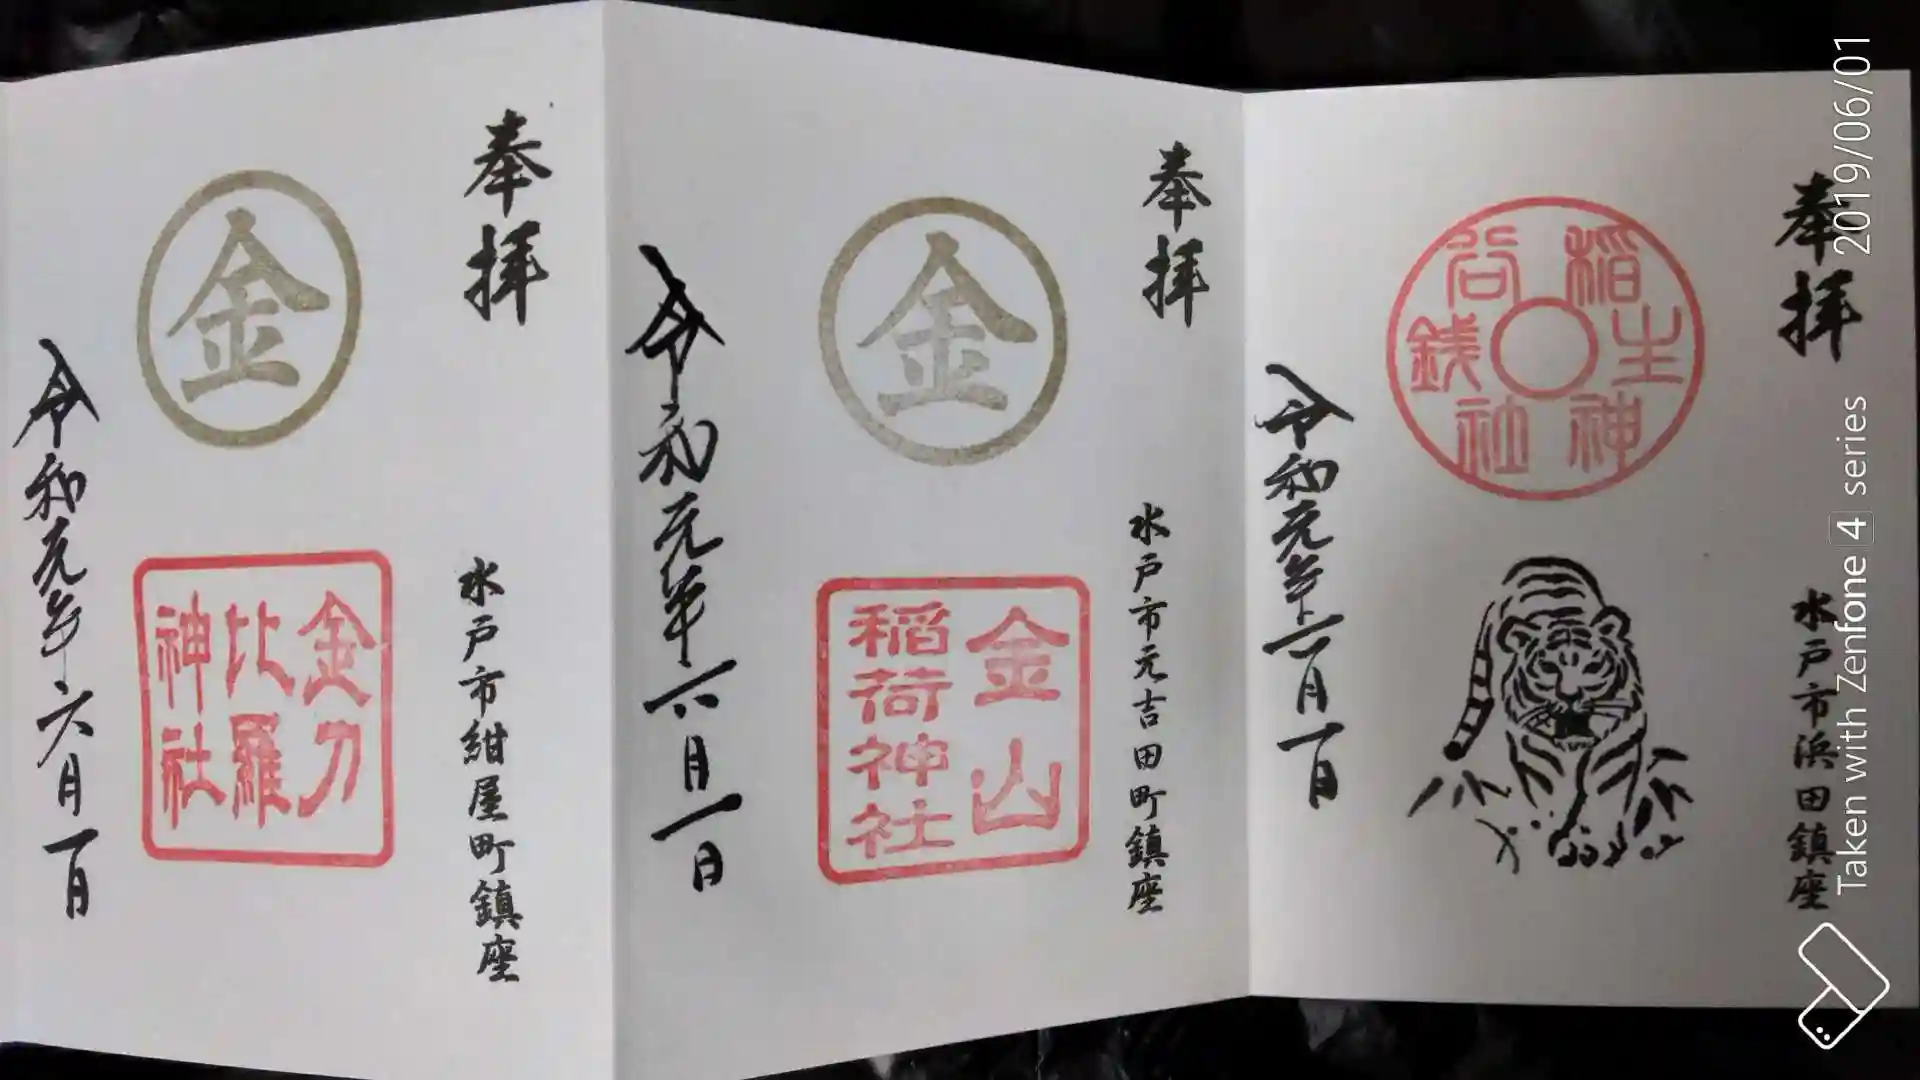 奉拝
銭谷稲生神社
水戸市浜田鎮座
令和元年六月一日
奉拝
金
水戸市元吉田町鎮座
金山
稲荷神社
令和元年六月一日
奉拝
金
水戸市紺屋町鎮座
金刀
比羅
神社
令和元年六月一日
Taken with Zenfone 4 series 2019/06/01